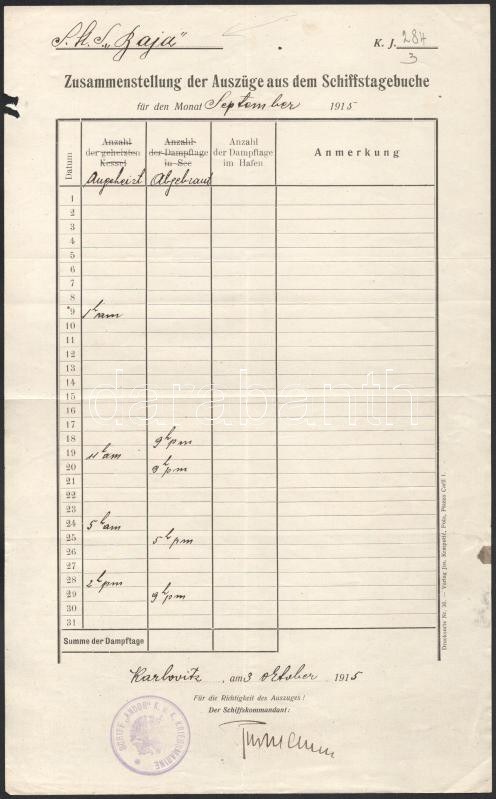 S. M. S. „Baja"
K. J. 284/3
Zusammenstellung der Auszüge aus dem Schiffstagebuche
für den Monat September 1915
Datum
Anzahl der geheizten Kessel
Anzahl der Dampftage in See
Anzahl der Dampftage im Hafen
Anmerkung
Angeheizt Abgebrannt
1
2
3
4
5
6
7
8
9 1h am
10
11
12
13
14
15
16
17
18 9h pm
19 4h am
20 9h pm
21
22
23
24 5h am
25 5h pm
26
27
28 2h pm
29 9h pm
30
31
Summe der Dampftage
darabanth
Drucksorte Nr. 36. — Verlag Jos. Krmpotić, Pola, Piazza Carli 1.
Karlovitz, am 3 Oktober 1915
Für die Richtigkeit des Auszuges!
Der Schiffskommandant:
SCHIFF „ANDOR" K. u. K. KRIEGS-MARINE